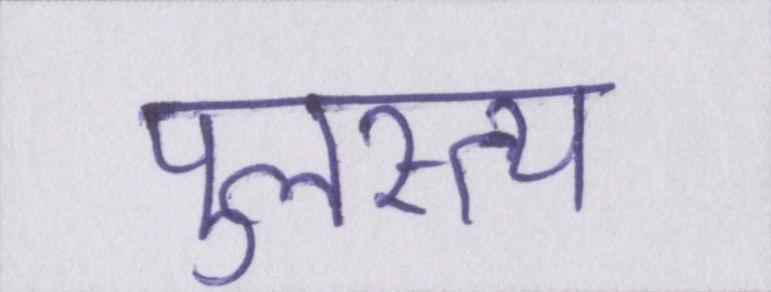 पुलस्त्य